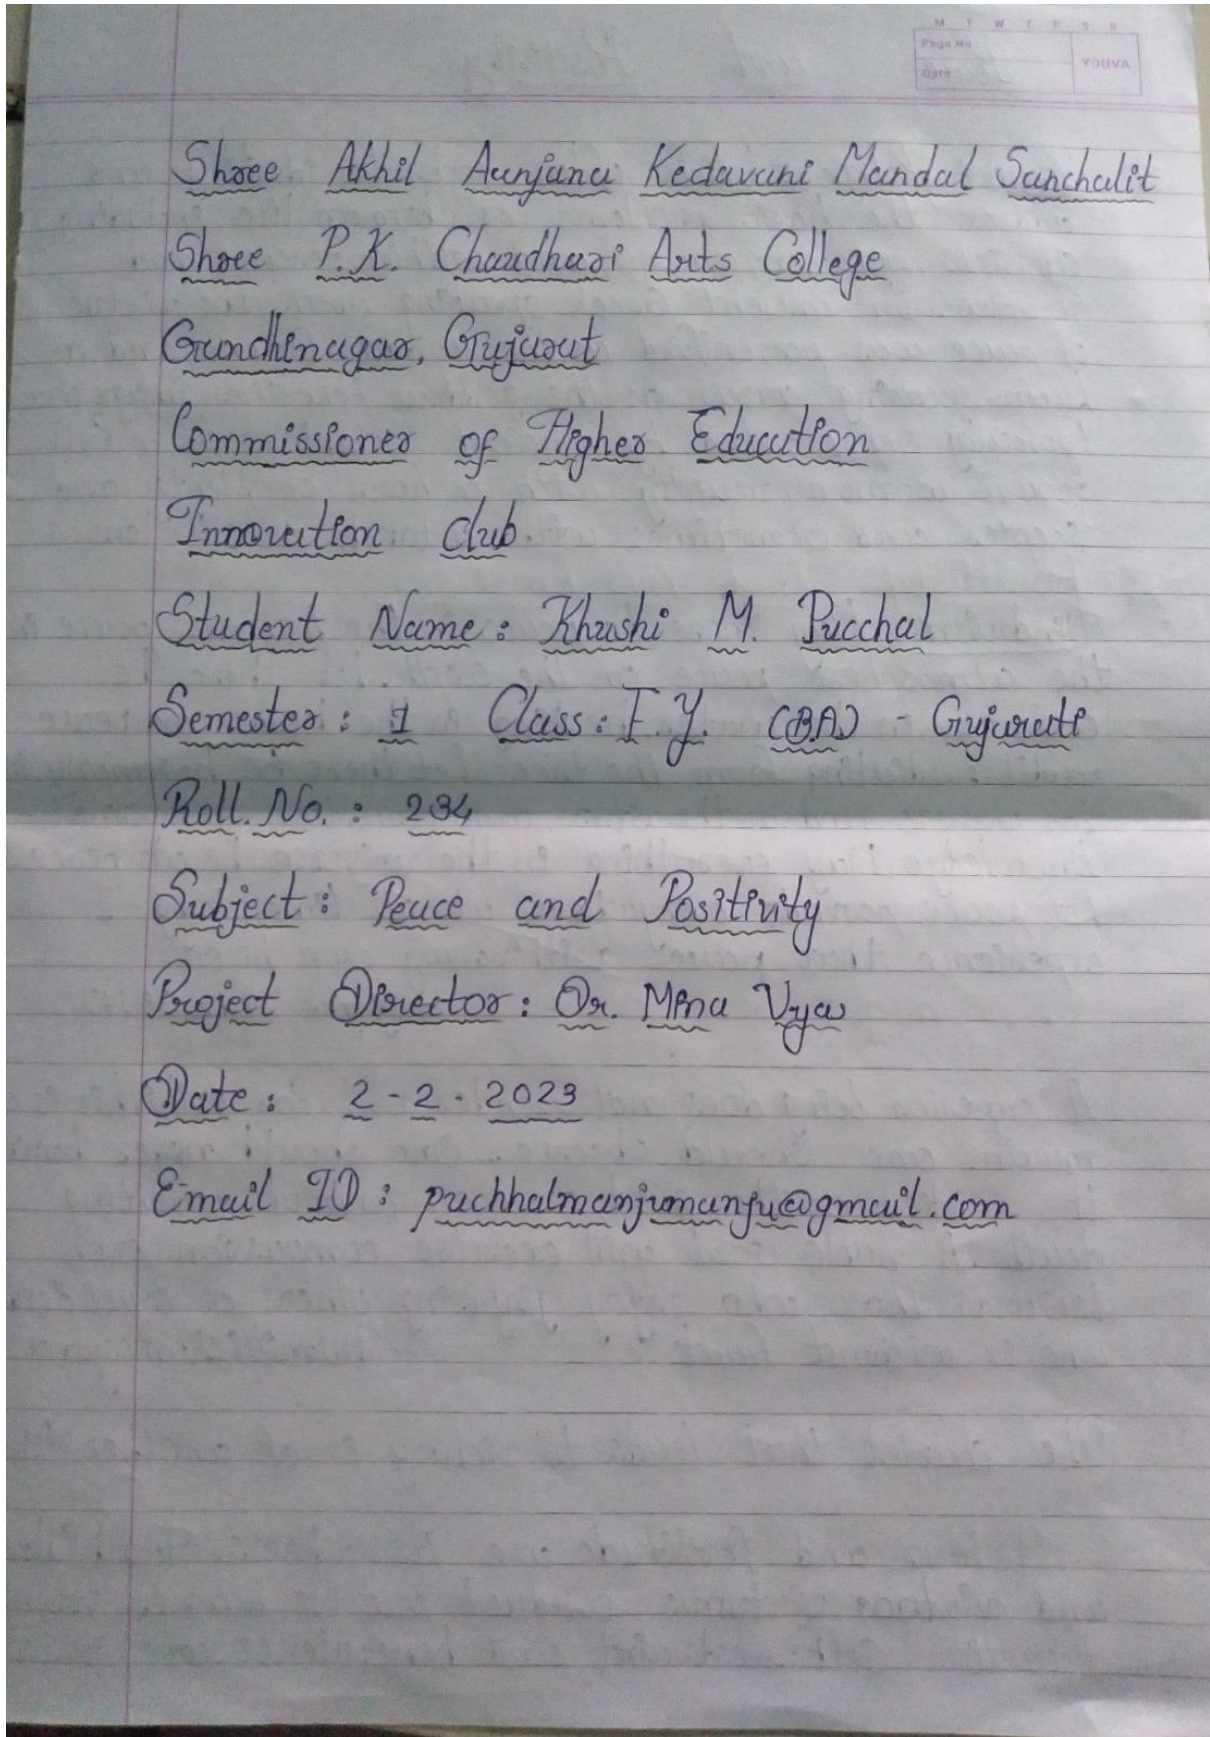 M T W T F S S
Page No
Date
YOUVA
Shree Akhil Aanjana Kedavani Mandal Sanchalit
Shree P.K. Chaudhari Arts College
Gandhinagar, Gujarat
Commissioner of Higher Education
Innovation Club
Student Name : Khushi M. Pucchal
Semester : 1 Class : F.Y. (BA) - Gujarati
Roll. No. : 234
Subject : Peace and Positivity
Project Director : Dr. Mina Vyas
Date : 2 - 2 - 2023
Email ID : puchhalmanjumanju@gmail.com